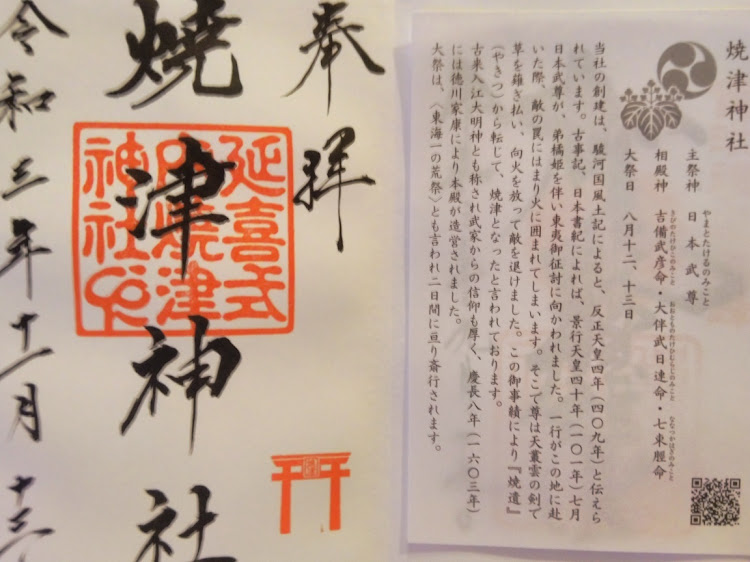 焼津神社
やまとたけるのみこと
主祭神 日本武尊
きびのたけひこのみこと おおとものたけひむらじのみこと ななつかはぎのみこと
相殿神 吉備武彦命・大伴武日連命・七束脛命
大祭日 八月十二、十三日
当社の創建は、駿河国風土記によると、反正天皇四年(四〇九年)と伝えら
れています。古事記、日本書紀によれば、景行天皇四十年(一〇一年)七月
日本武尊が、弟橘姫を伴い東夷御征討に向かわれました。一行がこの地に赴
いた際、敵の罠にはまり火に囲まれてしまいます。そこで尊は天叢雲の剣で
草を薙ぎ払い、向火を放って敵を退けました。この御事績により『焼遺』
(やきつ)から転じて、焼津となったと言われております。
古来入江大明神とも称され武家からの信仰も厚く、慶長八年(一六〇三年)
には徳川家康により本殿が造営されました。
大祭は、〈東海一の荒祭〉とも言われ二日間に亘り斎行されます。
奉拝
燒津神社
延喜式
内焼津
神社印
令和三年十一月十三